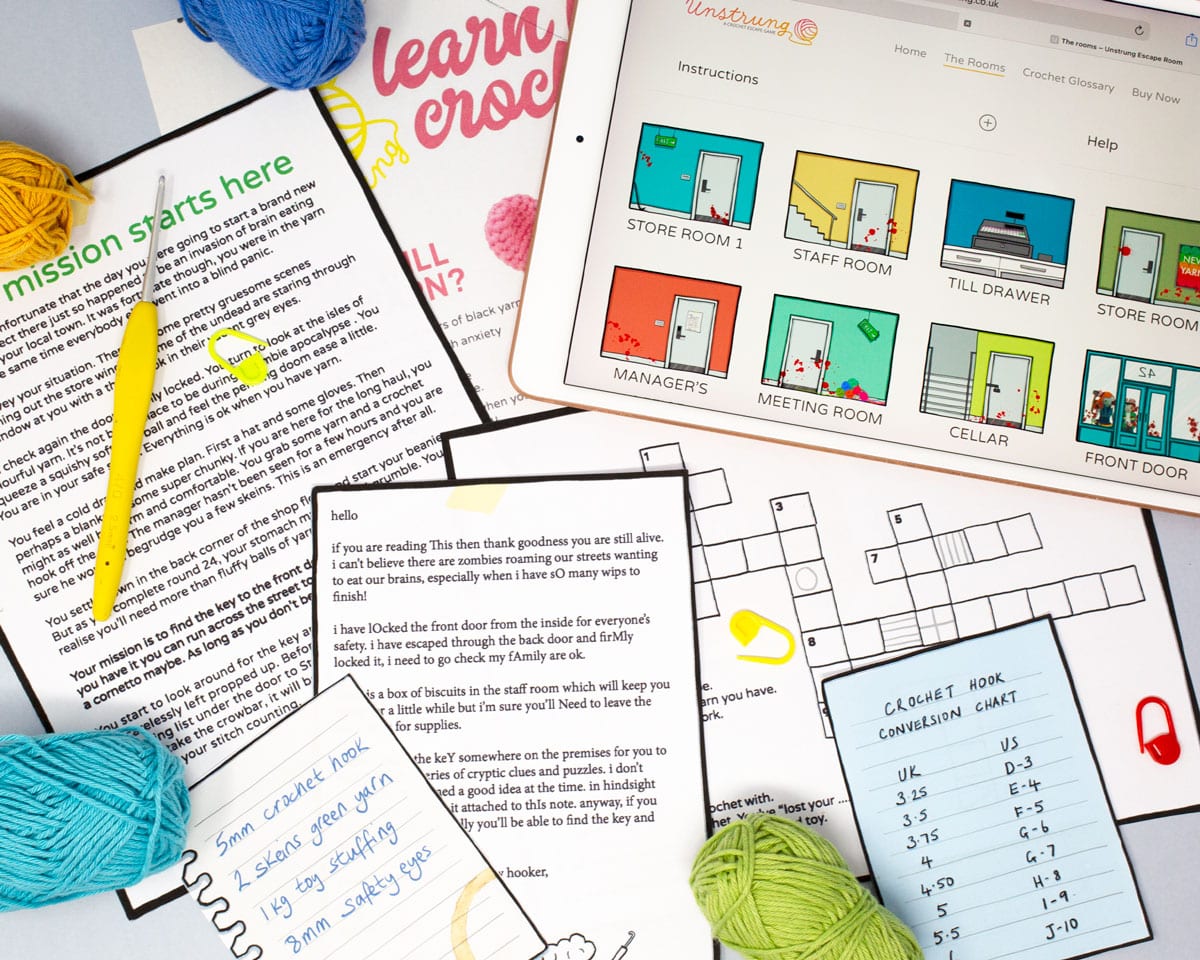 learn
croc
ILL
N?
rs of black yarn
h anxiety
mission starts here
nfortunate that the day you were going to start a brand new
ect there just so happened be an invasion of brain eating
your local town. It was fortunate though, you were in the yarn
e same time everybody went into a blind panic.
ey your situation. There some pretty gruesome scenes
ning out the store wind me of the undead are staring through
ndow at you with a th k in their grey eyes.
check again the doo ly locked. You turn to look at the isles of
lourful yarn. It's not ace to be during mbie apocalypse . You
queeze a squishy so ball and feel the p ng doom ease a little.
You are in your safe s Everything is ok when you have yarn.
You feel a cold dr d make plan. First a hat and some gloves. Then
perhaps a blank some super chunky. If you are here for the long haul, you
might as well m and comfortable. You grab some yarn and a crochet
hook off the The manager hasn't been seen for a few hours and you are
sure he wo begrudge you a few skeins. This is an emergency after all.
You settl wn in the back corner of the shop flo d start your beanie
But as y complete round 24, your stomach mi rumble. You
realise you'll need more than fluffy balls of yarn
Your mission is to find the key to the front d
you have it you can run across the street to
a cornetto maybe. As long as you don't be
You start to look around for the key an
relessly left propped up. Befor
ng list under the door to St
take the crowbar, it will b
your stitch counting.
Unstrung
A CROCHET ESCAPE GAME
ng.co.uk
The rooms – Unstrung Escape Room
Home The Rooms Crochet Glossary Buy Now
Instructions
Help
STORE ROOM 1
STAFF ROOM
TILL DRAWER
STORE ROOM
NEW
YARN
MANAGER'S
MEETING ROOM
CELLAR
FRONT DOOR
42
1
3
5
7
8
9
e.
arn you have.
ork.
ochet with.
her. You've "lost your ....
d toy.
hello
if you are reading This then thank goodness you are still alive.
i can't believe there are zombies roaming our streets wanting
to eat our brains, especially when i have sO many wips to
finish!
i have lOcked the front door from the inside for everyone's
safety. i have escaped through the back door and firMly
locked it, i need to go check my fAmily are ok.
is a box of biscuits in the staff room which will keep you
r a little while but i'm sure you'll Need to leave the
for supplies.
the keY somewhere on the premises for you to
eries of cryptic clues and puzzles. i don't
ned a good idea at the time. in hindsight
it attached to thIs note. anyway, if you
lly you'll be able to find the key and
hooker,
5mm crochet hook
2 skeins green yarn
1kg toy stuffing
8mm safety eyes
CROCHET HOOK
CONVERSION CHART
UK US
3.25 D-3
3.5 E-4
3.75 F-5
4 G-6
4.50 G-7
5 H-8
5.5 I-9
J-10